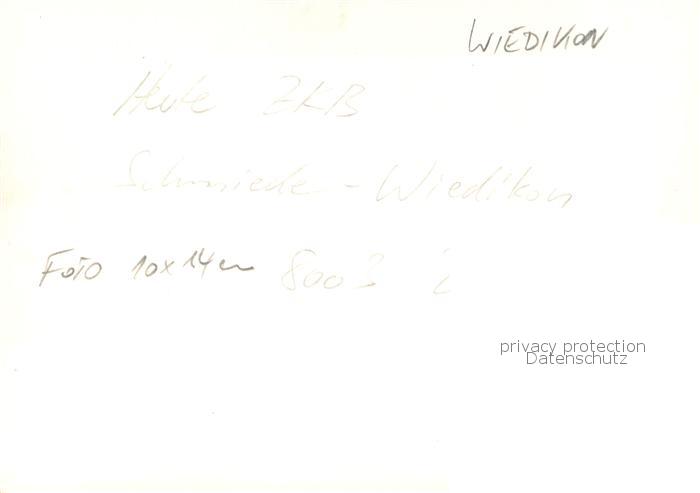 WIEDIKON
Heute ZKB
Schmiede - Wiedikon
FOTO 10x14cm 8003
privacy protection
Datenschutz